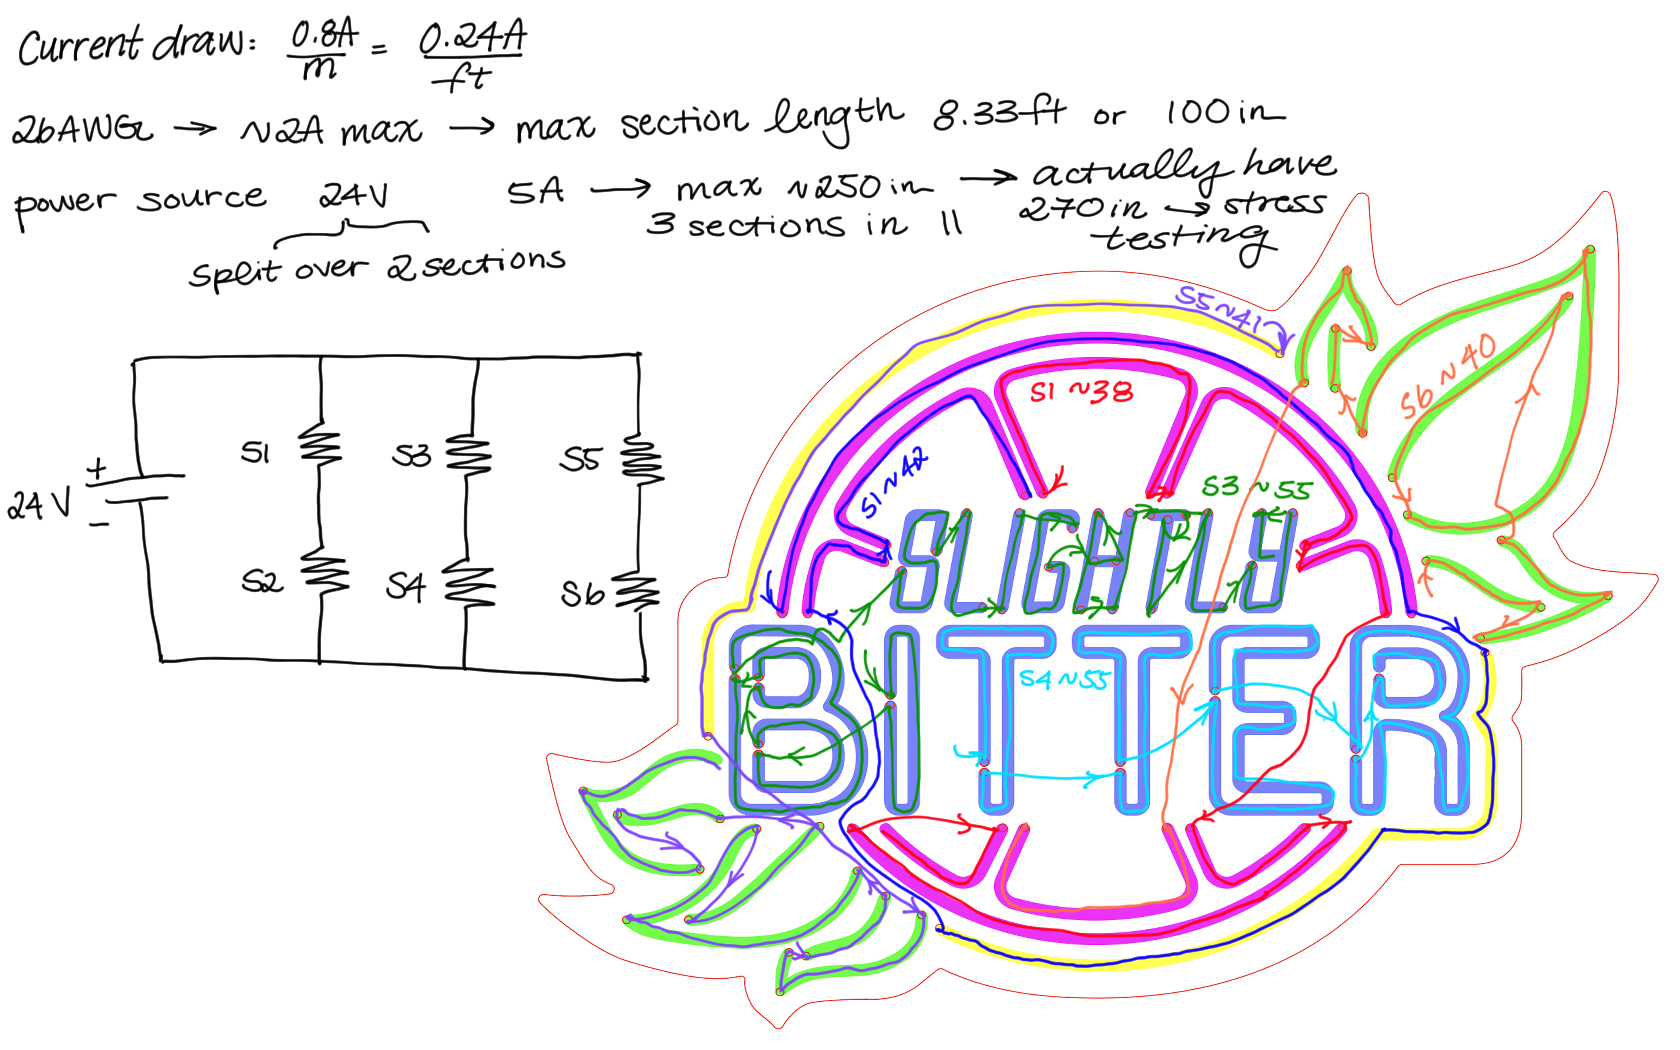 Current draw: 0.8A/m = 0.24A/ft
26AWG → ~2A max → max section length 8.33ft or 100in
power source 24V 5A → max ~250in → actually have
3 sections in || 270in → stress
testing
split over 2 sections
S5~41
S1 ~38
S6 ~ 40
S1 ~ 42
S3 ~ 55
S1 S3 S5
24V + −
S2 S4 S6
SLIGHTLY
BITTER
S4 ~ 55